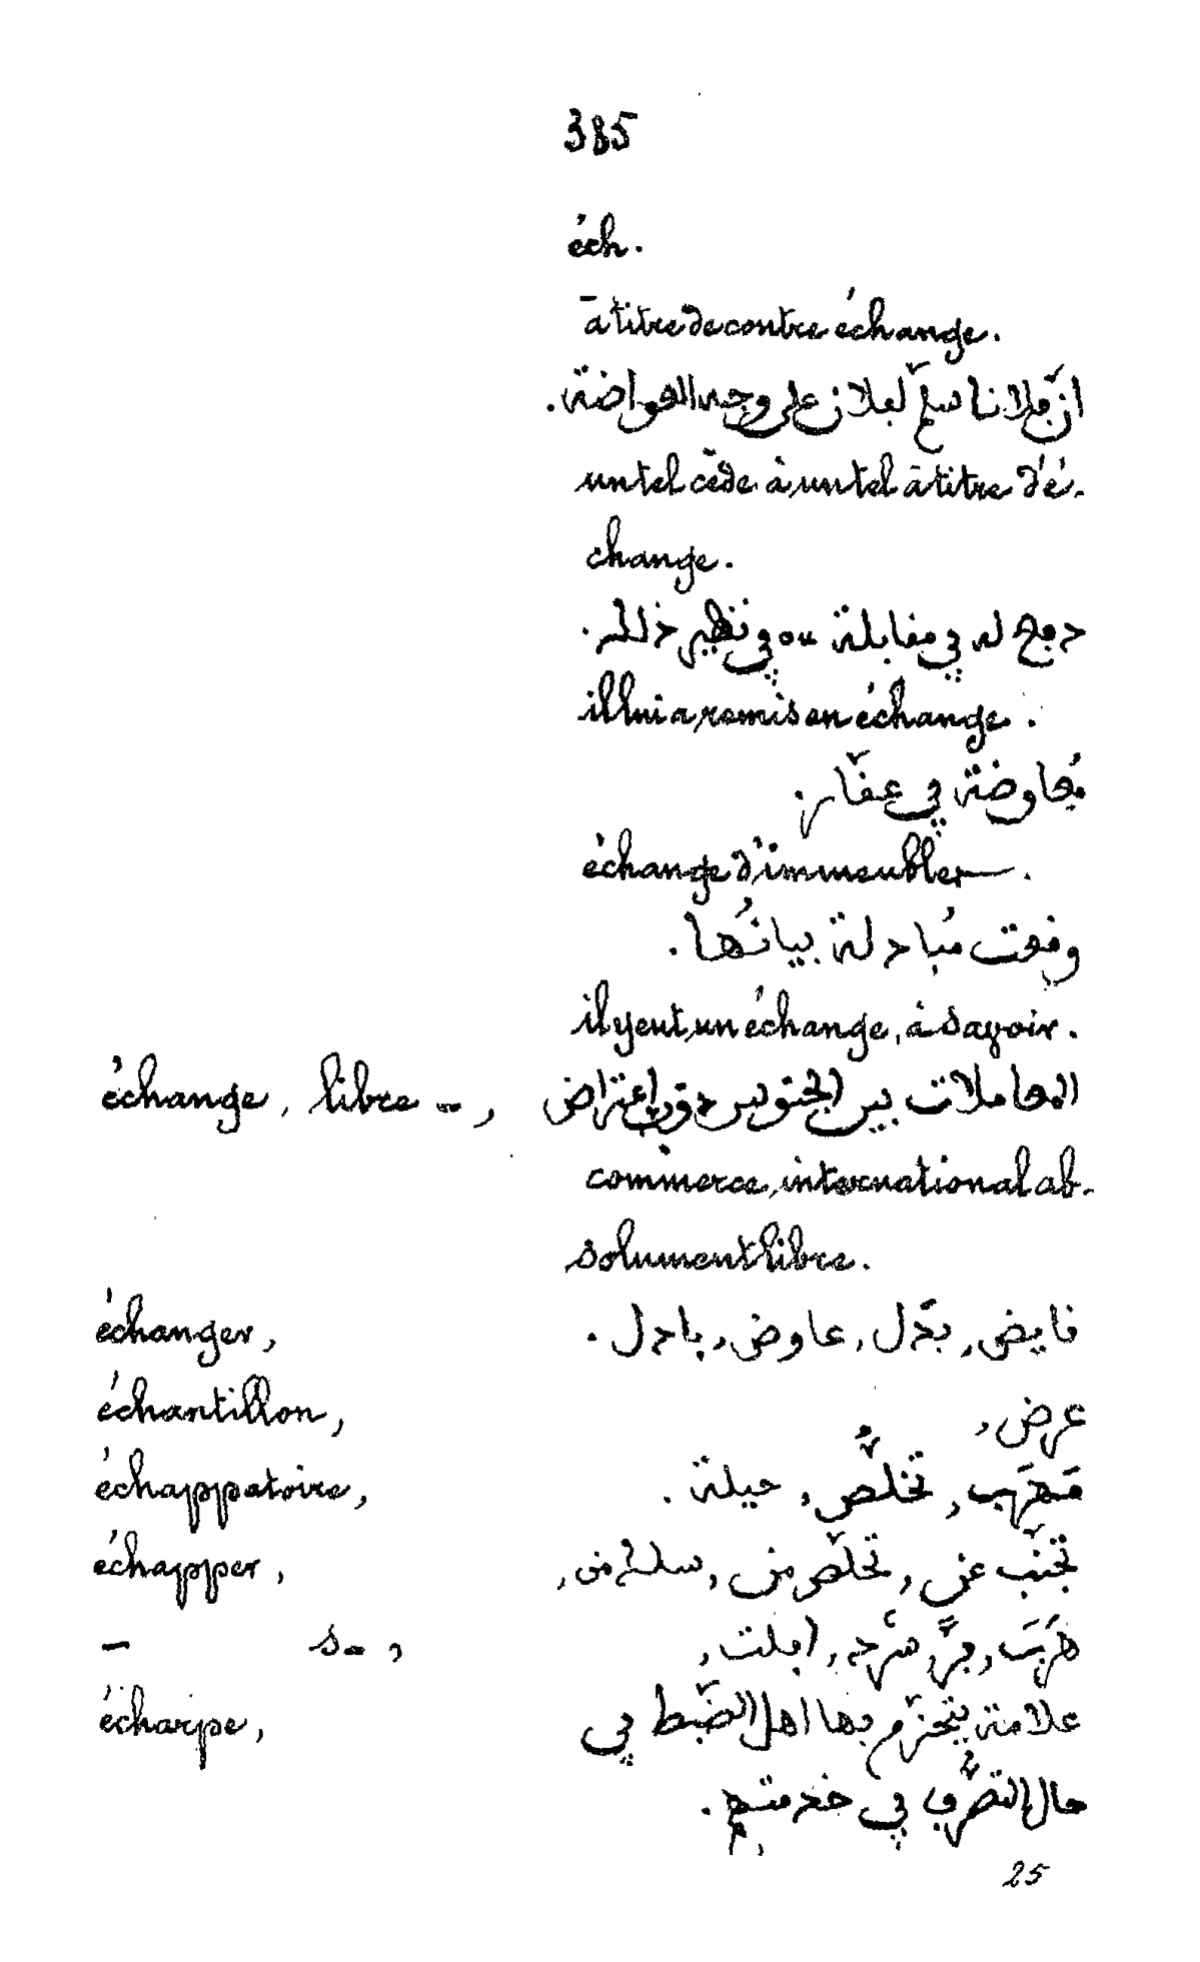 385
éch.
à titre de contre échange.
انّ فلانا سلّم لفلان على وجه المعواضة.
un tel cède à un tel à titre d'é-
change.
دفع له في مقابلة ou في نظير ذلك.
il lui a remis en échange.
مُعاوضة في عقّار.
échange d'immeubles.
وقعت مُبادلة بيانُها.
il y eut un échange, à savoir.
échange, libre –, المعاملات بين الجنوس دون اعتراض
commerce international ab-
solument libre.
échanger, قايض, بدّل, عاوض, بادل.
échantillon, عرض,
échappatoire, مَهرَب, تخلُّص, حيلة.
échapper, تجنّب عن, تخلّص من, سلك من,
– s–, هَرَبَ, فَرَّ, شرْد, افلت,
écharpe, علامة يتحزّم بها اهل الضّبط في
حال التصرُّف في خدمتهم.
25